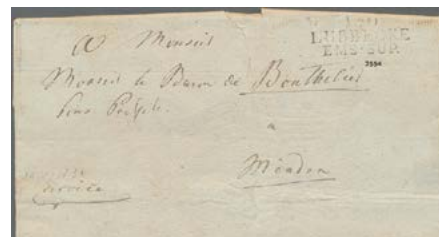 LUBBECKE
EMS-SUP.
2554
A Monsieur
Monsieur le Baron de Bouthelier
Sous Préfet
a
Minden
Service